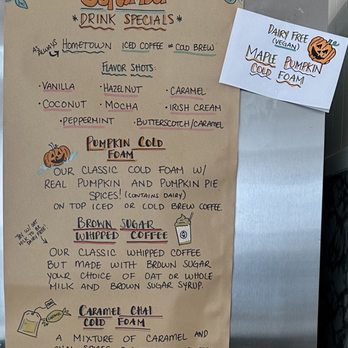 DRINK SPECIALS
*ALWAYS HOMETOWN ICED COFFEE * COLD BREW
FLAVOR SHOTS:
• VANILLA • HAZELNUT • CARAMEL
• COCONUT • MOCHA • IRISH CREAM
• PEPPERMINT • BUTTERSCOTCH/CARAMEL
PUMPKIN COLD
FOAM
OUR CLASSIC COLD FOAM W/
REAL PUMPKIN AND PUMPKIN PIE
SPICES! (CONTAINS DAIRY)
ON TOP ICED OR COLD BREW COFFEE
BROWN SUGAR
WHIPPED COFFEE
OUR CLASSIC WHIPPED COFFEE
BUT MADE WITH BROWN SUGAR
YOUR CHOICE OF OAT OR WHOLE
MILK AND BROWN SUGAR SYRUP.
CARAMEL CHAI
COLD FOAM
A MIXTURE OF CARAMEL AND
DAIRY FREE
(VEGAN)
MAPLE PUMPKIN
COLD FOAM